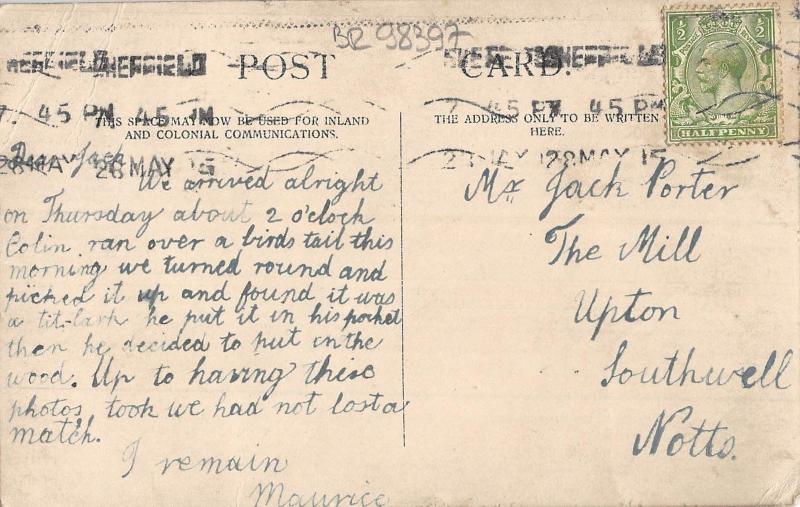 BR 98397
SHEFFIELD
POST CARD.
7. 45 PM 45 PM
45 PM 45 PM
THIS SPACE MAY NOW BE USED FOR INLAND
AND COLONIAL COMMUNICATIONS.
THE ADDRESS ONLY TO BE WRITTEN
HERE.
28 MAY 15
28 MAY 15
1/2 1/2
HALFPENNY
Dear Jack
We arrived alright
on Thursday about 2 o'clock
Colin ran over a birds tail this
morning we turned round and
picked it up and found it was
a tit-lark he put it in his pocket
then he decided to put in the
wood. Up to having these
photos took we had not lost a
match.
I remain
Maurice
Mr Jack Porter
The Mill
Upton
Southwell
Notts.